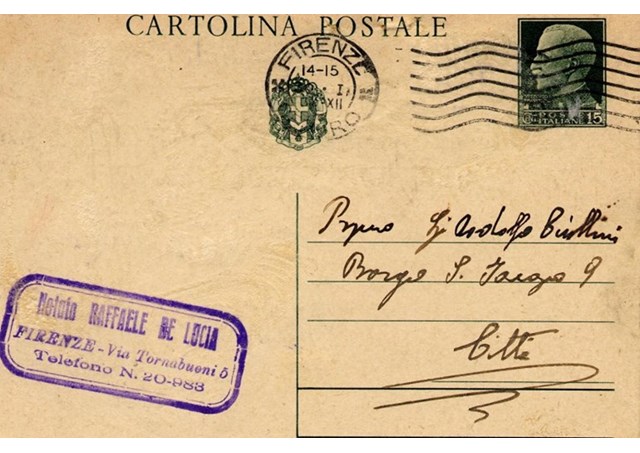 CARTOLINA POSTALE
FIRENZE
14-15
I.
XII
RO
POSTE ITALIANE 15
Adolfo
Borgo S. Jacopo 9
Città
Notaio RAFFAELE DE LUCIA
FIRENZE - Via Tornabuoni 5
Telefono N. 20-983